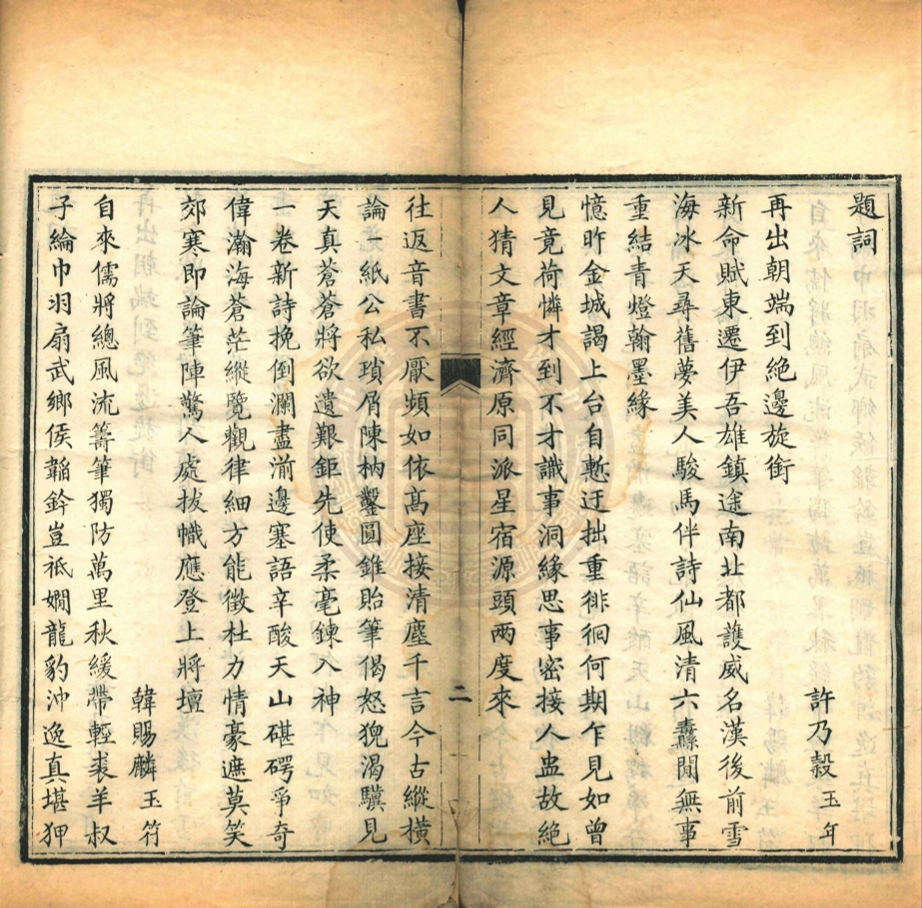 題詞
許乃穀 玉年
再出朝端到絶邊旋銜
新命賦東遷伊吾雄鎮途南北都護威名漢後前雪
海冰天尋舊夢美人駿馬伴詩仙風清六纛閒無事
重結青燈翰墨緣
憶昨金城謁上台自慙迂拙重徘徊何期乍見如曾
見竟荷憐才到不才識事洞緣思事密接人盅故絕
人猜文章經濟原同派星宿源頭兩度來
二
往返音書不厭頻如依髙座接清塵千言今古縱橫
論一紙公私瑣屑陳枘鑿圓錐貽筆偈怒猊渴驥見
天真蒼蒼將欲遺艱鉅先使柔毫鍊入神
一卷新詩挽倒瀾盡湔邊塞語辛酸天山碪碍爭奇
偉瀚海蒼茫縱覽觀律細方能徵杜力情豪遮莫笑
郊寒即論筆陣驚人處拔幟應登上將壇
韓賜麟 玉符
自來儒將總風流籌筆獨防萬里秋緩帶輕裘羊叔
子綸巾羽扇武鄉侯韜鈐豈祇嫺龍豹沖逸真堪狎